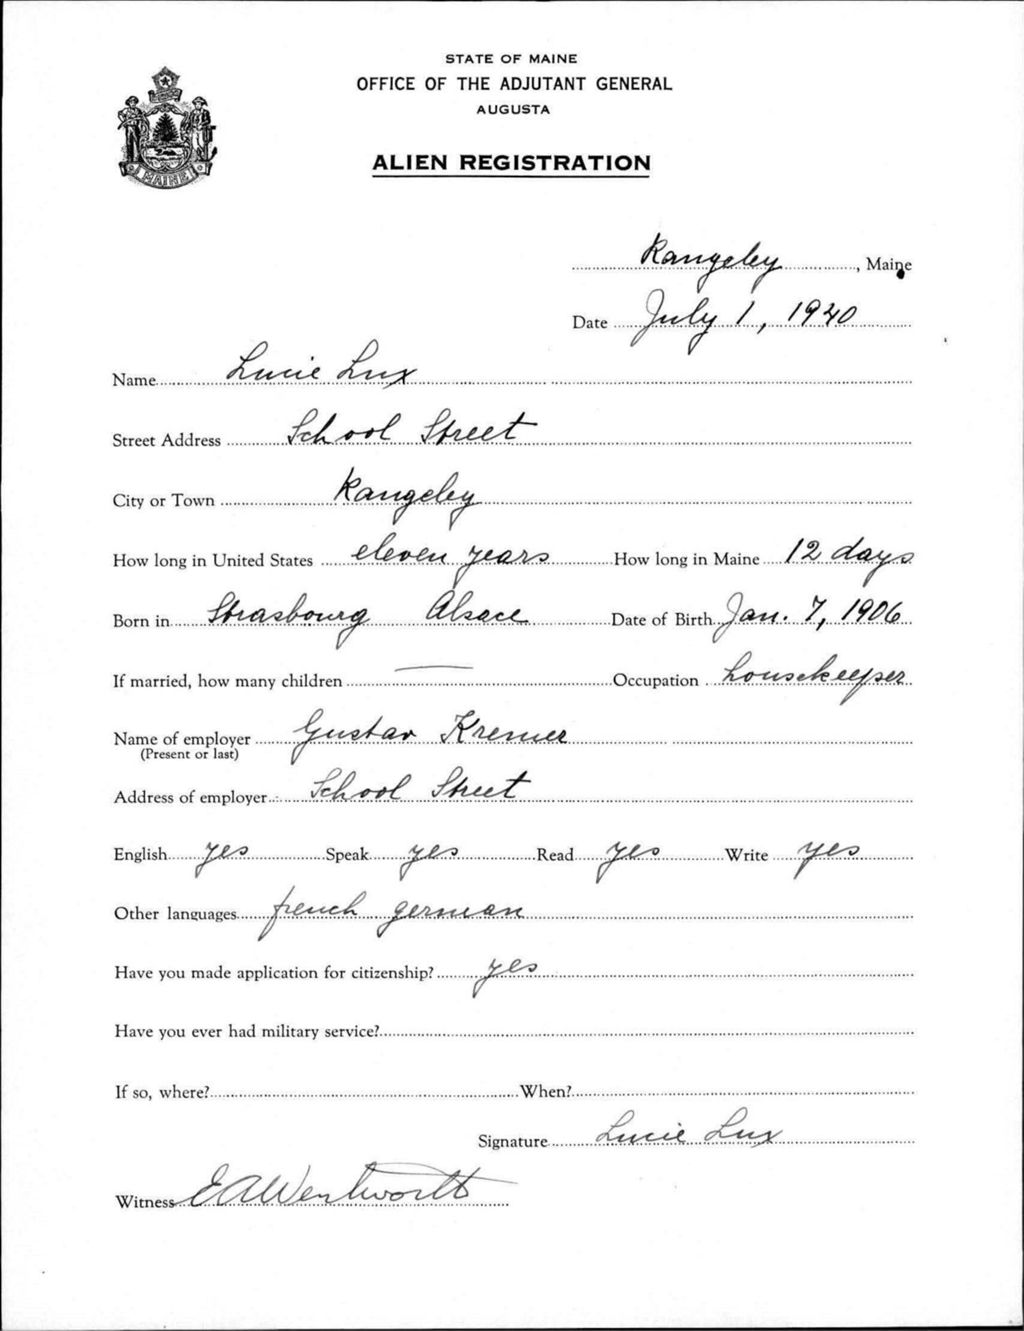 STATE OF MAINE
OFFICE OF THE ADJUTANT GENERAL
AUGUSTA
ALIEN REGISTRATION
MAINE
Rangeley, Maine
Date July 1, 1940
Name Lucie Lux
Street Address School Street
City or Town Rangeley
How long in United States eleven years How long in Maine 12 days
Born in Strasbourg Alsace Date of Birth Jan. 7, 1906
If married, how many children — Occupation housekeeper
Name of employer Gustav Kremer
(Present or last)
Address of employer School Street
English yes Speak yes Read yes Write yes
Other languages french german
Have you made application for citizenship? yes
Have you ever had military service?
If so, where? When?
Signature Lucie Lux
Witness E A Wentworth